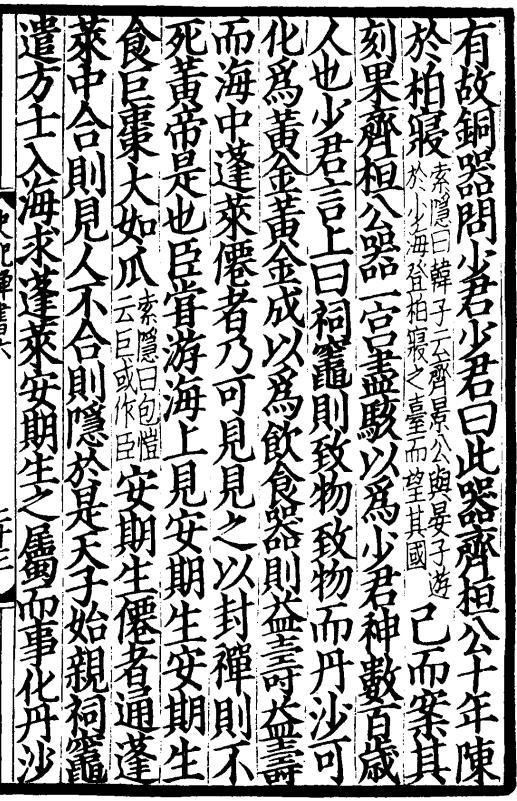 有故銅器問少君少君曰此器齊桓公十年陳
於柏寢索隱曰韓子云齊景公與晏子遊於少海登柏寢之臺而望其國已而案其
刻果齊桓公器一宫盡駭以爲少君神數百歲
人也少君言上曰祠竈則致物致物而丹沙可
化爲黃金黃金成以爲飲食器則益壽益壽
而海中蓬萊僊者乃可見見之以封禪則不
死黃帝是也臣甞游海上見安期生安期生
食巨棗大如瓜索隱曰包愷云巨或作臣安期生僊者通蓬
萊中合則見人不合則隱於是天子始親祠竈
遣方士入海求蓬萊安期生之屬而事化丹沙